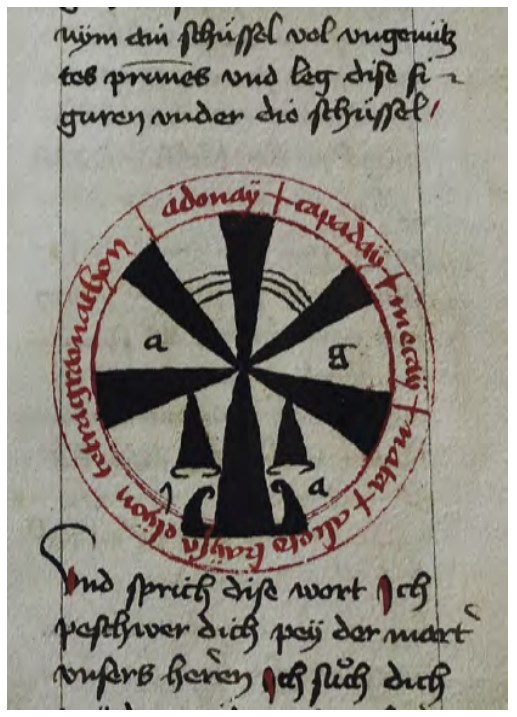 nym ain schüssel vol ungenutz
tes prunes vnd leg dise fi-
guren vnder die schüssel
adonaÿ + capadaÿ + mecaÿ + nala + aliois haÿsa elÿon tetragramathon
a
g
a
Vnd sprich dise wort Ich
peschwer dich peÿ der mart
vnsers heren Ich such dich